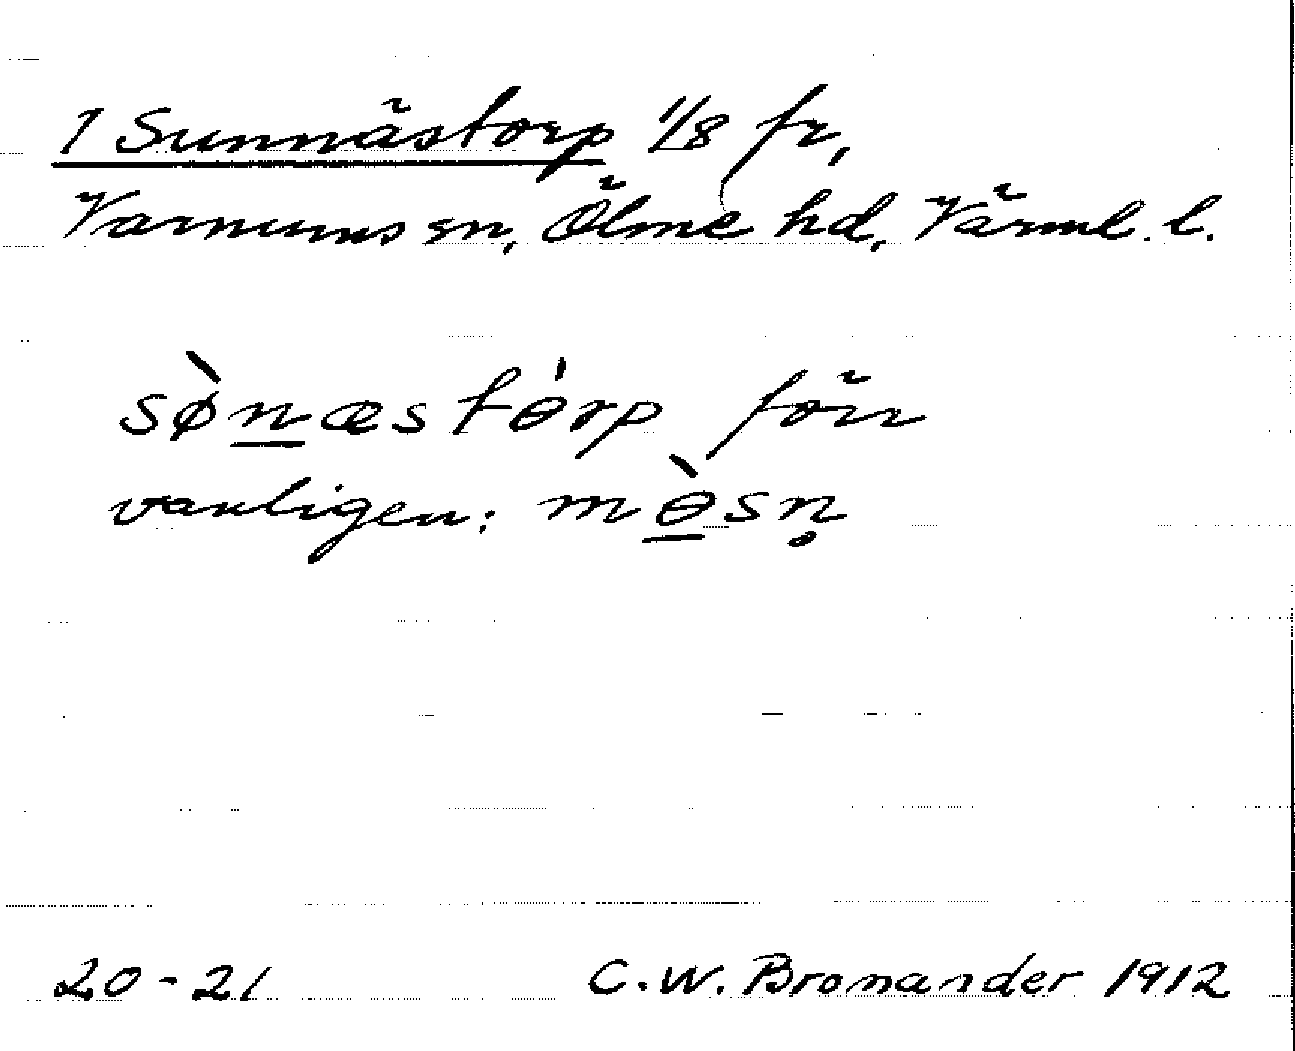 1 Sunnästorp 1/8 fr,
Varnums sn, Ölme hd, Värml. l.
sø̀næstɵ́rp förr
vanligen: mɵ̀sṇ
20-21 C.W. Bromander 1912